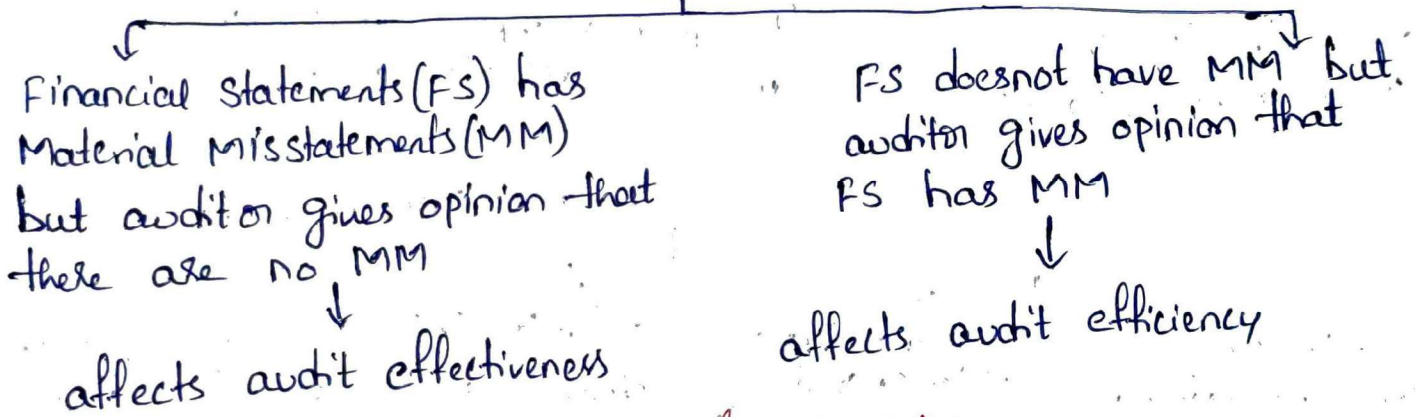 Financial Statements (FS) has
Material Misstatements (MM)
but auditor gives opinion that
there are no MM
affects audit effectiveness
FS doesnot have MM but
auditor gives opinion that
FS has MM
affects audit efficiency